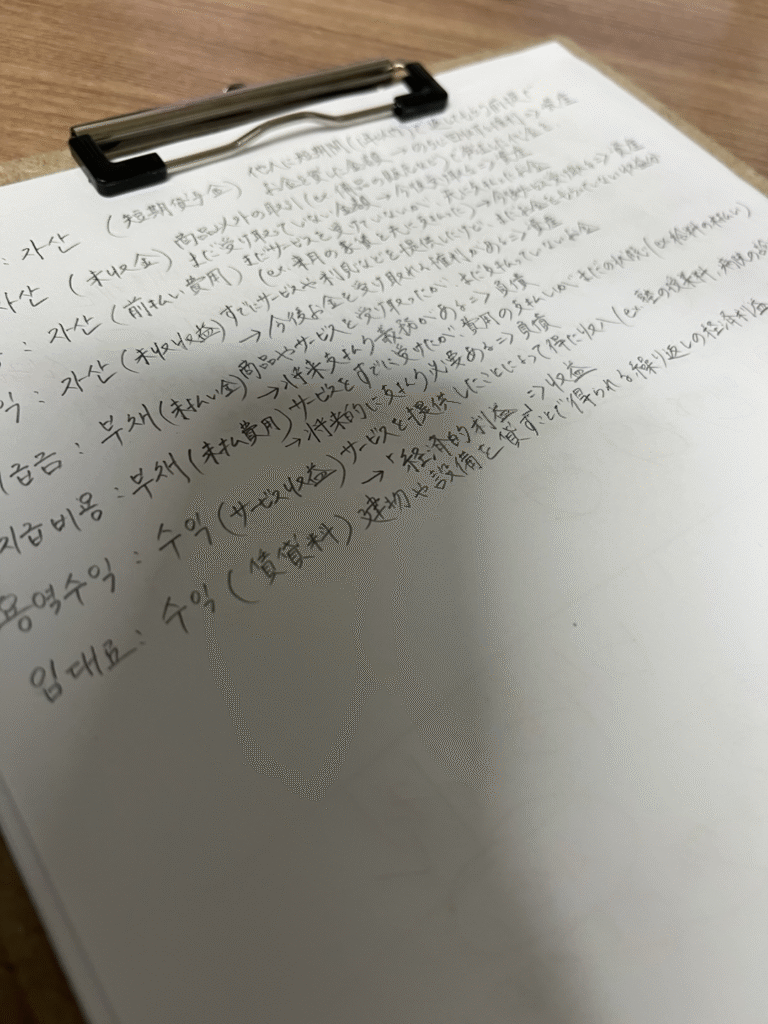 : 자산 (短期貸予金) 他人に短期間(1年以内)で返してもらう前提で
お金を貸した金額 → のちに回収する権利 => 資産
자산 (未収金) 商品以外の取引 (ex. 備品の販売など)で発生した
まだ受け取っていない金額 → 今後受け取る => 資産
: 자산 (前払い費用) まだサービスを受けていないが、先に支払ったお金
(ex. 来月の家賃を先に支払った) → 今後 受け取る => 資産
익 : 자산 (未収収益) すでにサービスや利息などを提供したけど、まだお金をもらっていない収益分
→ 今後お金を受け取れる権利がある => 資産
지급금 : 부채 (未払い金) 商品やサービスを受け取ったが、まだ支払っていないお金
→ 将来支払う義務がある => 負債
지급비용 : 부채 (未払費用) サービスをすでに受けたが費用の支払いがまだの状態 (ex. 給料の未払い)
→ 将来的に支払う必要ある => 負債
용역수익 : 수익 (サービス収益) サービスを提供したことによって得た収入 (ex. 塾の授業料、病院の
→「経済的利益」=> 収益
임대료 : 수익 (賃貸料) 建物や設備を貸すことで得られる繰り返しの経済利益